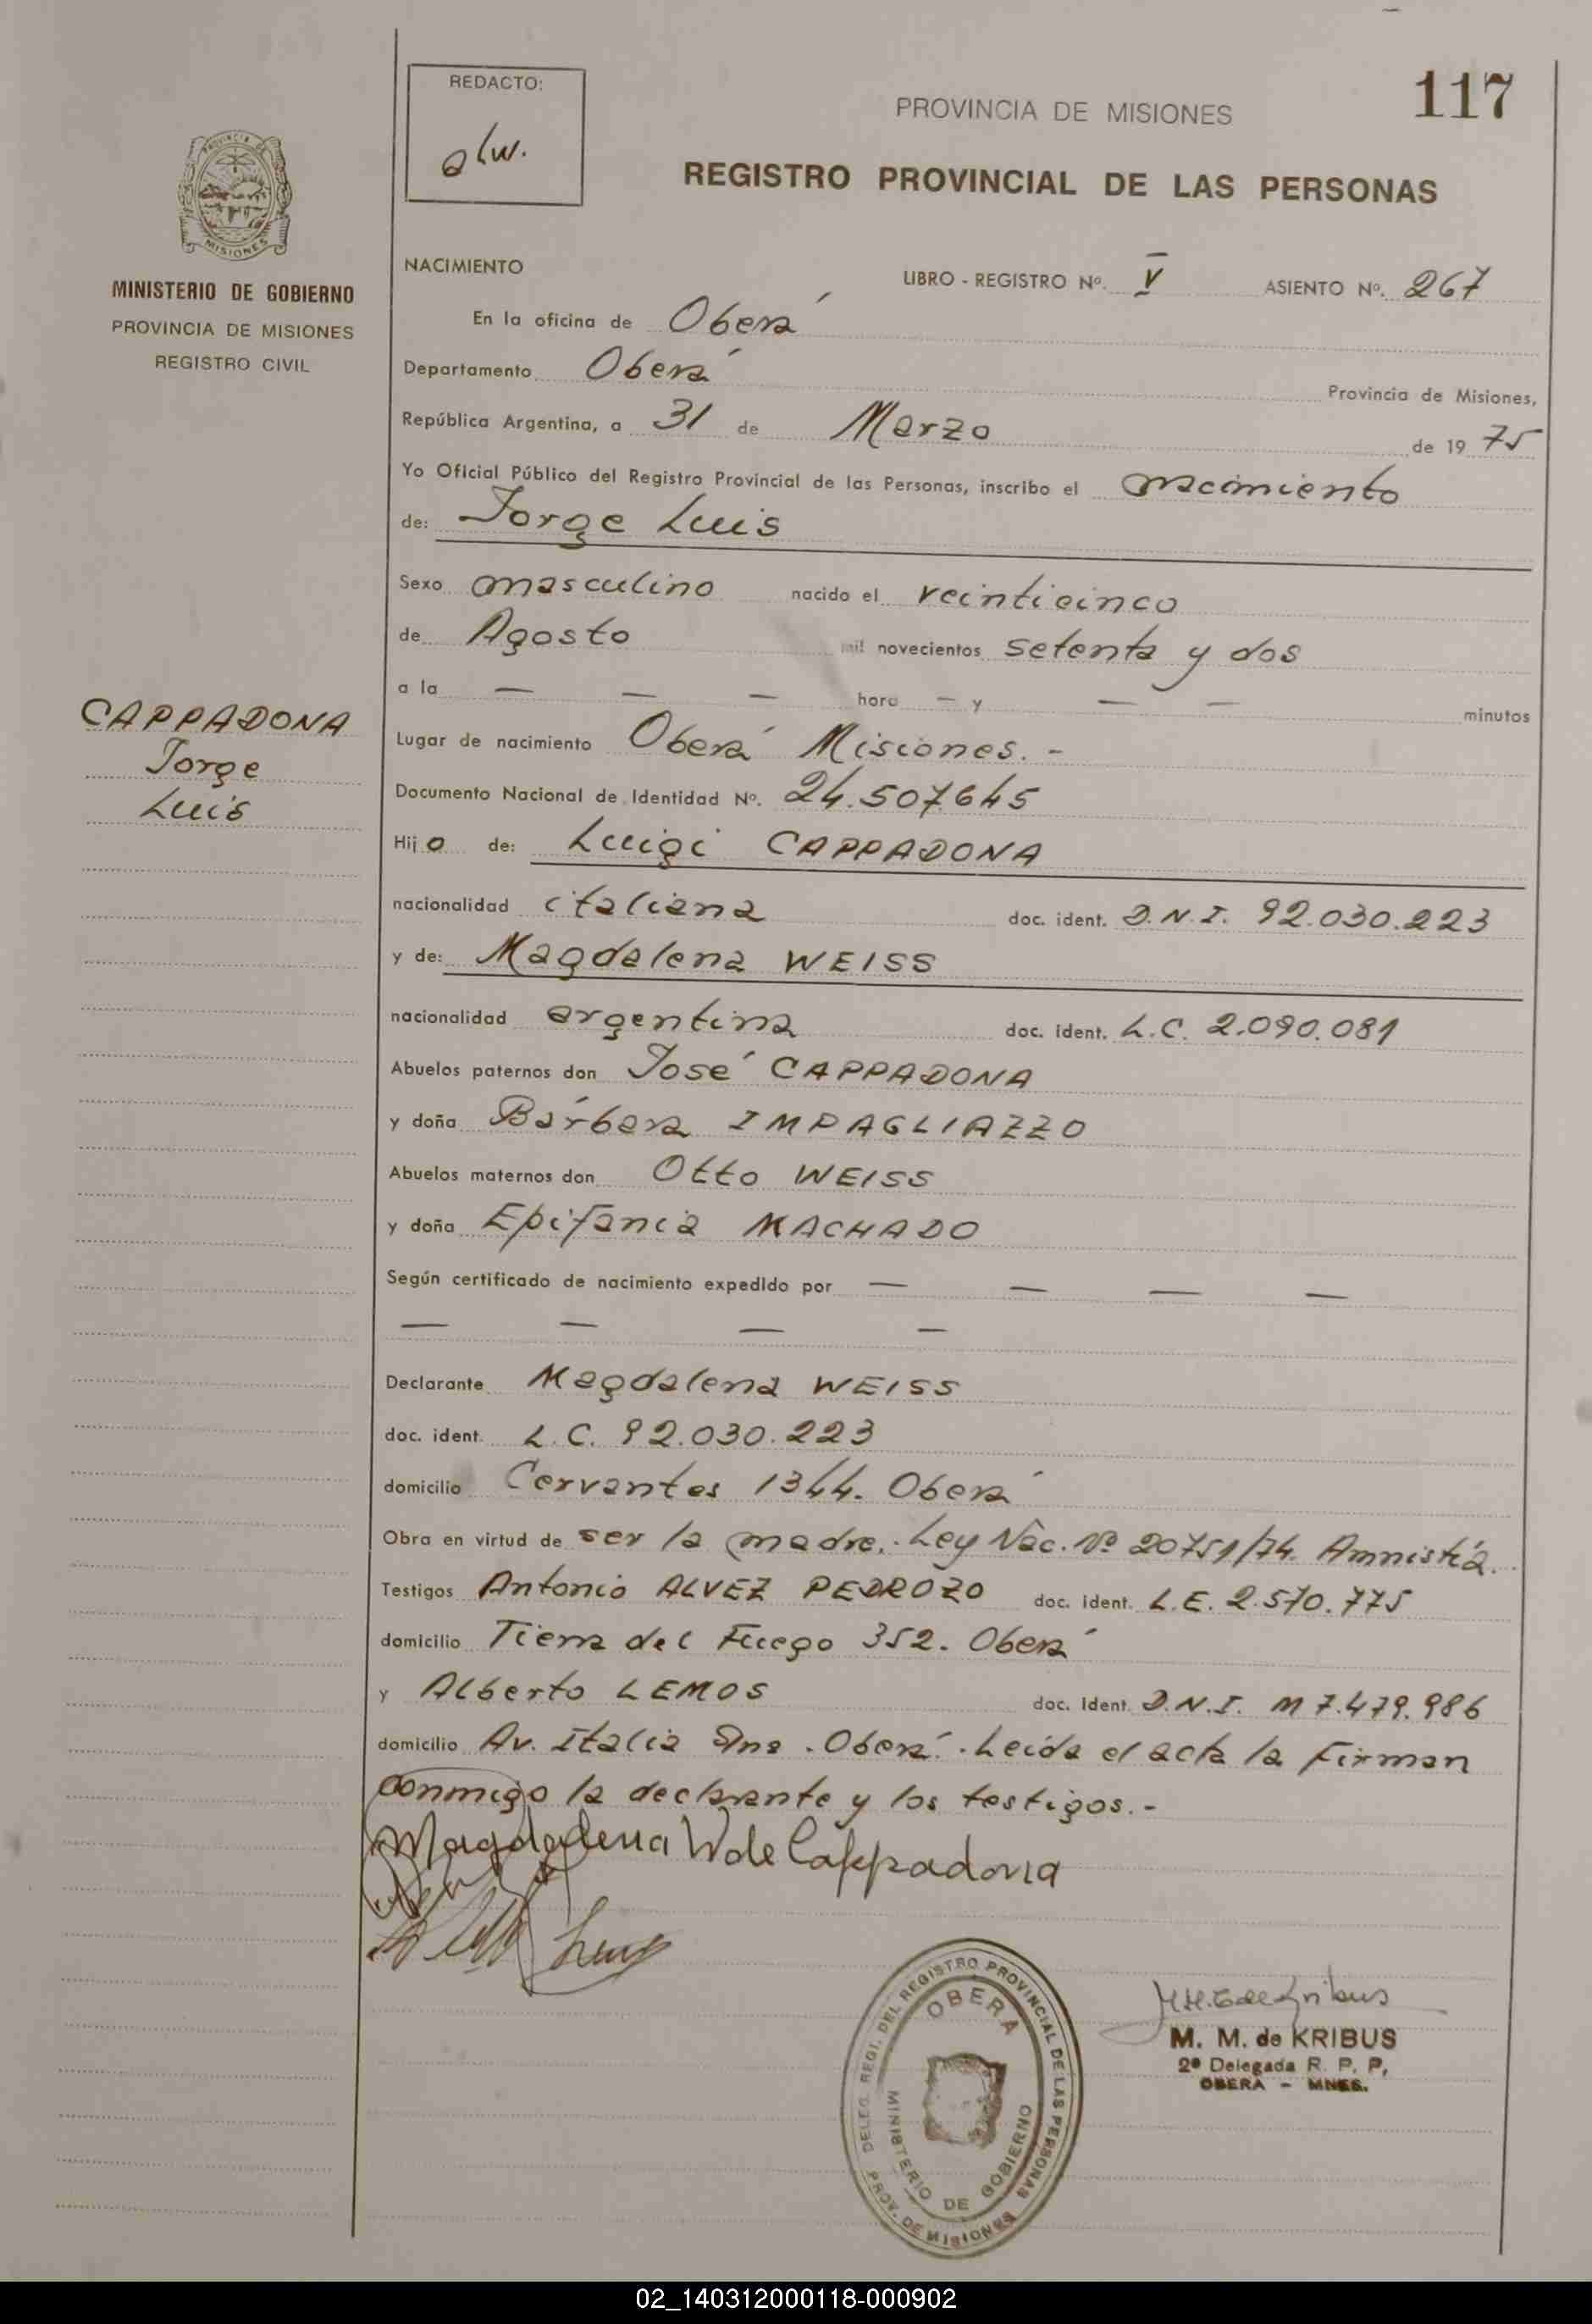 117
REDACTO:
alw.
PROVINCIA DE MISIONES
REGISTRO PROVINCIAL DE LAS PERSONAS
PROVINCIA DE
MISIONES
MINISTERIO DE GOBIERNO
PROVINCIA DE MISIONES
REGISTRO CIVIL
NACIMIENTO LIBRO - REGISTRO Nº. V ASIENTO Nº. 267
En la oficina de Oberá
Departamento Oberá Provincia de Misiones,
República Argentina, a 31 de Marzo de 19 75
Yo Oficial Público del Registro Provincial de las Personas, inscribo el nacimiento
de: Jorge Luis
Sexo masculino nacido el veinticinco
de Agosto mil novecientos setenta y dos
a la — — — hora — y — — minutos
CAPPADONA
Jorge
Luis
Lugar de nacimiento Oberá Misiones. -
Documento Nacional de Identidad Nº. 24.507.645
Hijo de: Luigi CAPPADONA
nacionalidad italiana doc. ident. D.N.I. 92.030.223
y de: Magdalena WEISS
nacionalidad argentina doc. ident. L.C. 2.090.081
Abuelos paternos don José CAPPADONA
y doña Bárbara IMPAGLIAZZO
Abuelos maternos don Otto WEISS
y doña Epifania MACHADO
Según certificado de nacimiento expedido por — — — —
— — — —
Declarante Magdalena WEISS
doc. ident. L.C. 92.030.223
domicilio Cervantes 1344. Oberá
Obra en virtud de ser la madre. Ley Nac. Nº 20751/74. Amnistía.
Testigos Antonio ALVEZ PEDROZO doc. ident. L.E. 2.570.775
domicilio Tierra del Fuego 352. Oberá
y Alberto LEMOS doc. ident. D.N.I. M 7.479.986
domicilio Av. Italia S/no. Oberá. Leída el acta la Firman
conmigo la declarante y los testigos. -
Magdalena W de Cappadona
DELEG. REGI. DEL REGISTRO PROVINCIAL DE LAS PERSONAS
OBERA
MINISTERIO DE GOBIERNO
PROV. DE MISIONES
M. M. de KRIBUS
2ª Delegada R. P. P.
OBERA - MNES.
02_140312000118-000902